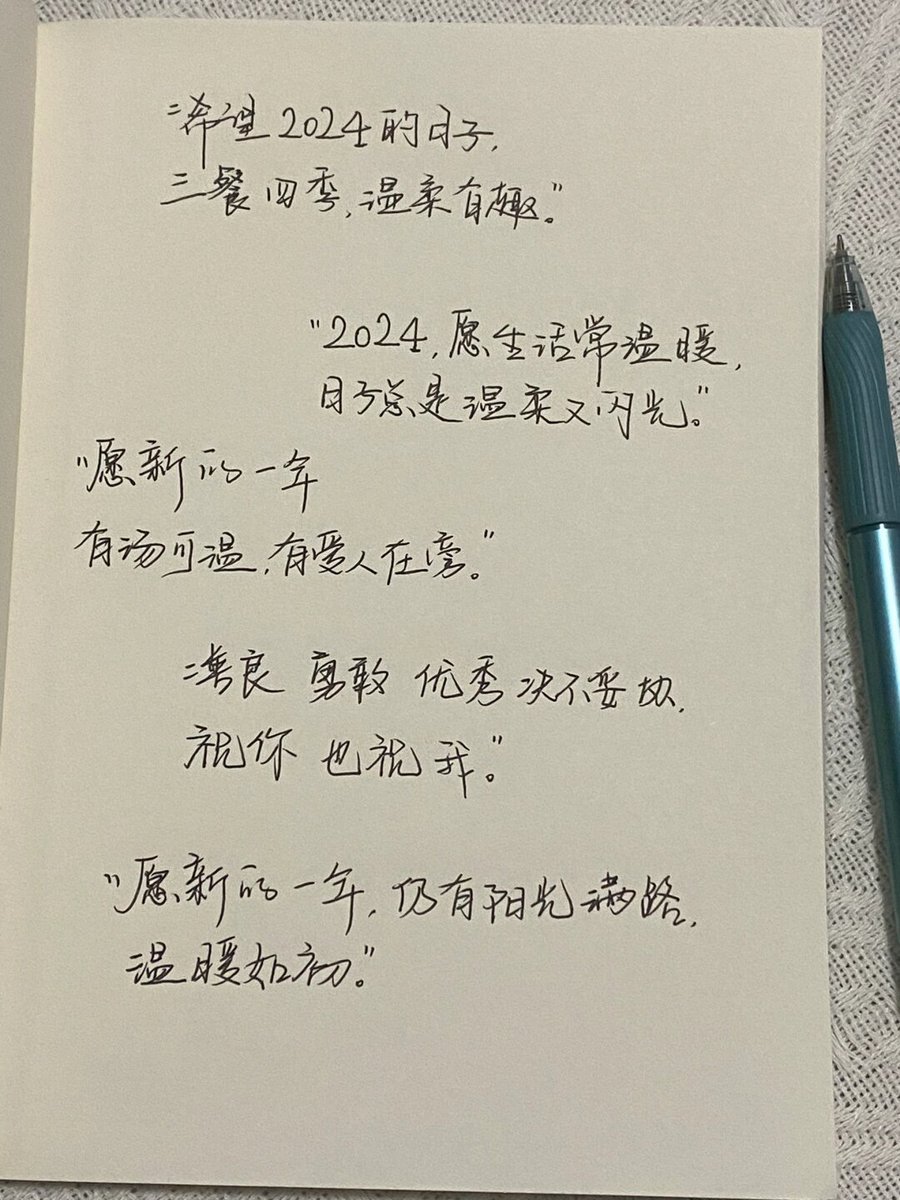 "希望2024的日子,
三餐四季,温柔有趣。"
"2024,愿生活常温暖,
日子总是温柔又闪光。"
"愿新的一年
有汤可温,有爱人在旁。"
"善良 勇敢 优秀 决不妥协,
祝你 也祝我。"
"愿新的一年,仍有阳光满路,
温暖如初。"